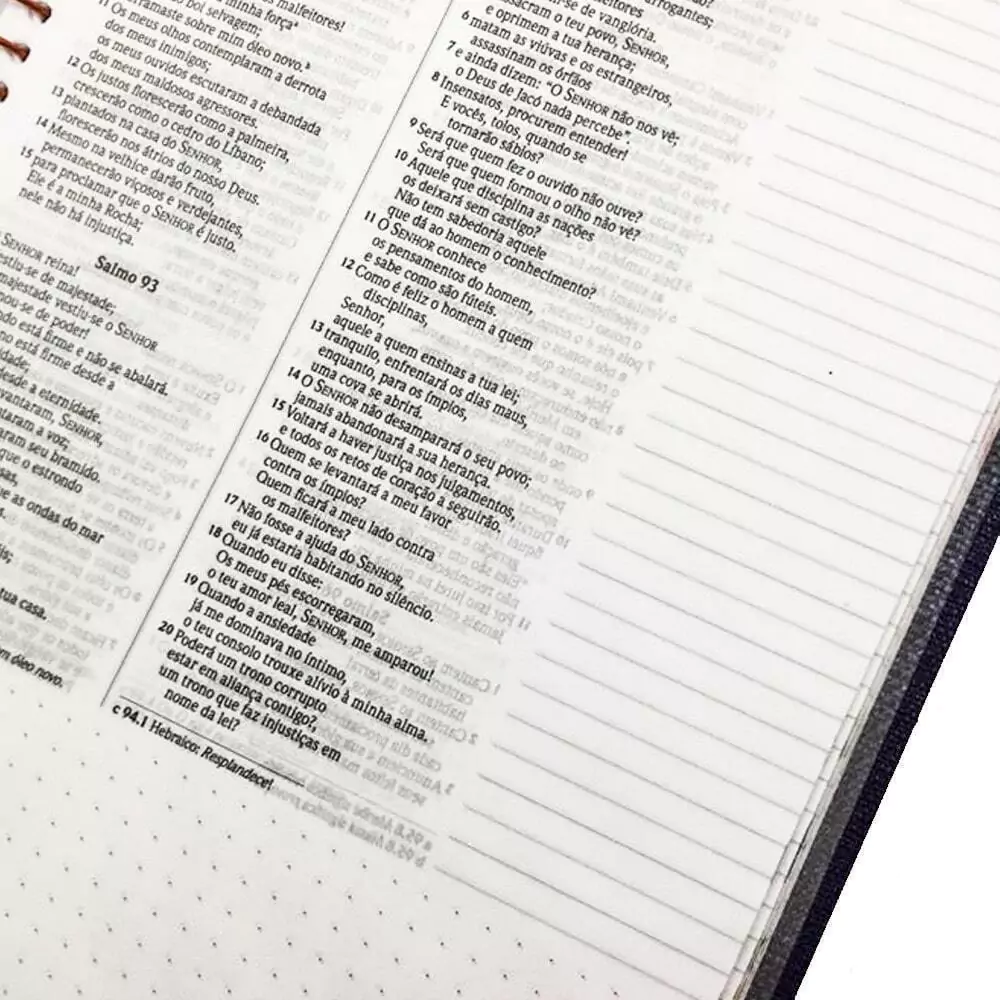 malfeitores!
minha força
boi selvagem;
derramaste sobre mim óleo novo.b
11 Os meus olhos contemplaram a derrota
dos meus inimigos;
os meus ouvidos escutaram a debandada
dos meus maldosos agressores.
12 Os justos florescerão como a palmeira,
crescerão como o cedro do Líbano;
13 plantados na casa do SENHOR,
florescerão nos átrios do nosso Deus.
14 Mesmo na velhice darão fruto,
permanecerão viçosos e verdejantes,
15 para proclamar que o SENHOR é justo.
Ele é a minha Rocha;
nele não há injustiça.
Salmo 93
SENHOR reina!
vestiu-se de majestade;
majestade vestiu-se o SENHOR
de poder!
está firme e não se abalará.
está firme desde a
desde a eternidade.
SENHOR,
a voz;
seu bramido.
que o estrondo
as ondas do mar
tua casa.
óleo novo.
arrogantes;
de vanglória.
o teu povo, SENHOR,
e oprimem a tua herança;
6 matam as viúvas e os estrangeiros,
assassinam os órfãos
7 e ainda dizem: "O SENHOR não nos vê;
o Deus de Jacó nada percebe".
8 Insensatos, procurem entender!
E vocês, tolos, quando se
tornarão sábios?
9 Será que quem fez o ouvido não ouve?
Será que quem formou o olho não vê?
10 Aquele que disciplina as nações
os deixará sem castigo?
Não tem sabedoria aquele
que dá ao homem o conhecimento?
11 O SENHOR conhece
os pensamentos do homem,
e sabe como são fúteis.
12 Como é feliz o homem a quem
disciplinas,
Senhor,
aquele a quem ensinas a tua lei;
13 tranquilo, enfrentará os dias maus,
enquanto, para os ímpios,
uma cova se abrirá.
14 O SENHOR não desamparará o seu povo;
jamais abandonará a sua herança.
15 Voltará a haver justiça nos julgamentos,
e todos os retos de coração a seguirão.
16 Quem se levantará a meu favor
contra os ímpios?
Quem ficará a meu lado contra
os malfeitores?
17 Não fosse a ajuda do SENHOR,
eu já estaria habitando no silêncio.
18 Quando eu disse:
Os meus pés escorregaram,
o teu amor leal, SENHOR, me amparou!
19 Quando a ansiedade
já me dominava no íntimo,
o teu consolo trouxe alívio à minha alma.
20 Poderá um trono corrupto
estar em aliança contigo?,
um trono que faz injustiças em
nome da lei?
c 94.1 Hebraico: Resplandece!